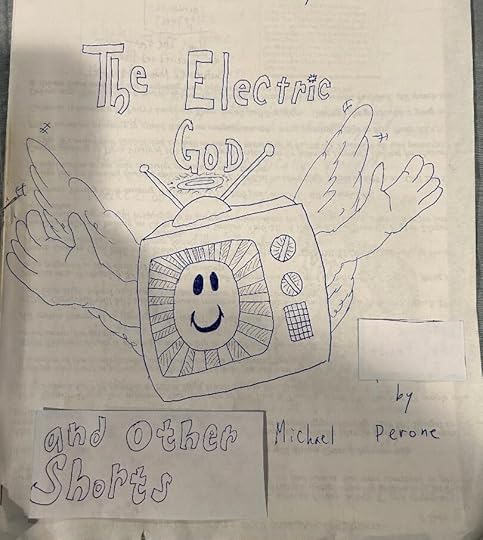 The Electric
God
by
Michael Perone
and Other
Shorts